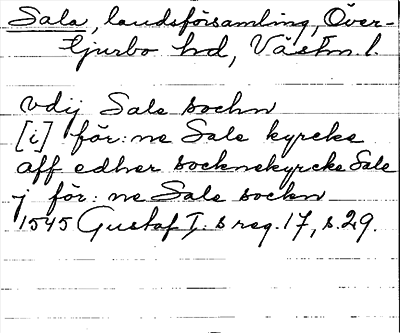 Sala, landsförsamling, Över-
tjurbo hd, Västm. l.
vdij Sale sochn
[i] för: ne Sale kyrcke
aff edher socknekyrcke Sale
j för: ne Sale sockn
1545 Gustaf I:s reg. 17, s. 29.